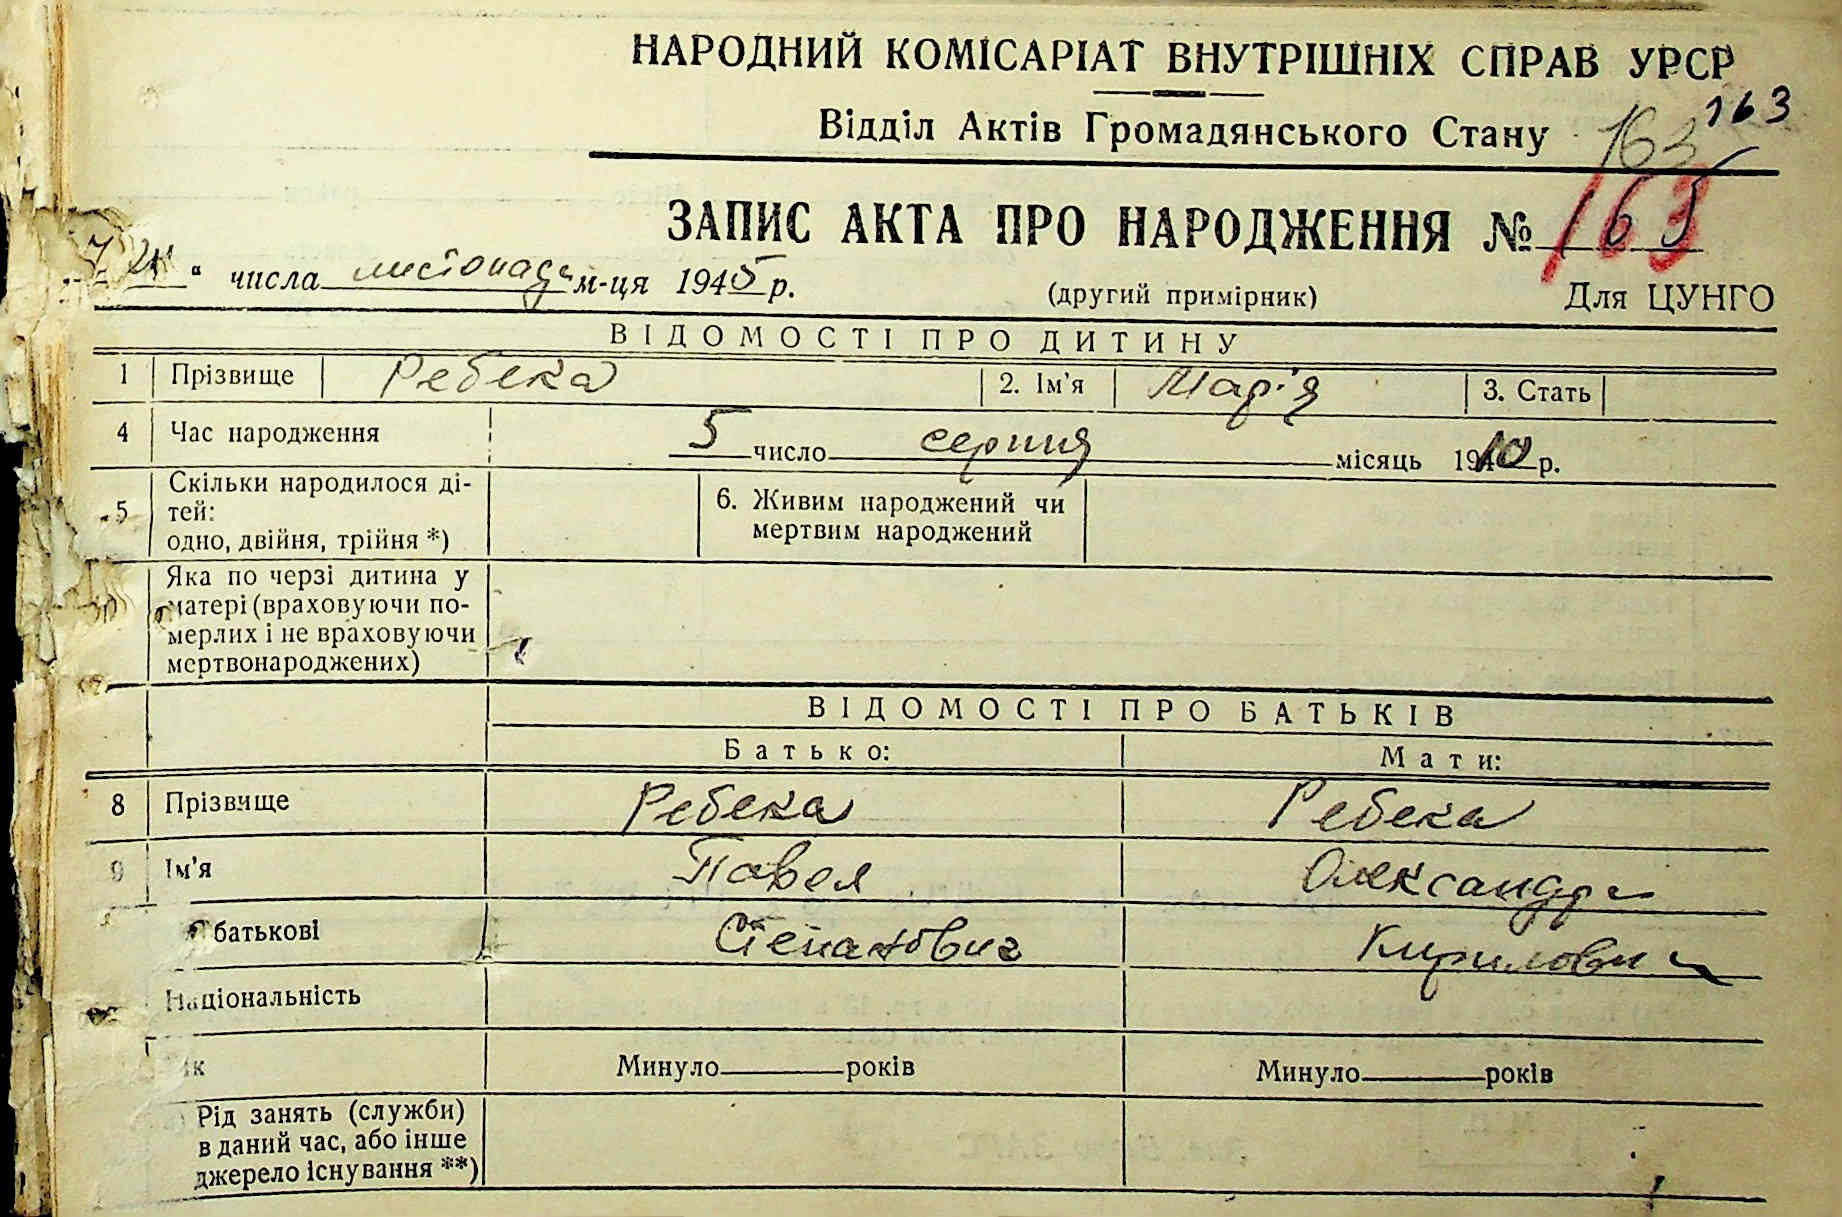 НАРОДНИЙ КОМІСАРІАТ ВНУТРІШНІХ СПРАВ УРСР
163
Відділ Актів Громадянського Стану 163
ЗАПИС АКТА ПРО НАРОДЖЕННЯ № 163
" числа листопада м-ця 1945 р. (другий примірник) Для ЦУНГО
ВІДОМОСТІ ПРО ДИТИНУ
1 Прізвище Ребека 2. Ім'я Марія 3. Стать
4 Час народження 5 число серпня місяць 1910 р.
5 Скільки народилося ді-
тей:
одно, двійня, трійня *)
6. Живим народжений чи
мертвим народжений
Яка по черзі дитина у
матері (враховуючи по-
мерлих і не враховуючи
мертвонароджених)
ВІДОМОСТІ ПРО БАТЬКІВ
Батько: Мати:
8 Прізвище Ребека Ребека
9 Ім'я Павел Олександра
батькові Степанович Кириловна
Національність
ік Минуло років Минуло років
Рід занять (служби)
в даний час, або інше
джерело існування **)